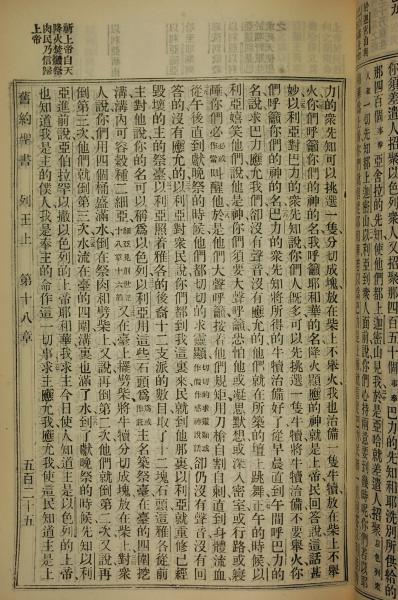 你須差遣人招聚以色列衆人又招聚那四百五十個事奉巴力的先知和耶洗別所供給的
那四百個事奉亞舍拉的先知使他們都上迦密山見我於是亞哈就差遣人招聚以色列衆
人和一切先知都上迦密山以利亞到衆人面前說你們心持兩意要到幾時呢
祈上帝自天
降火焚獻祭
肉民乃信歸
上帝
力的衆先知可以挑選一隻分切成塊放在柴上不舉火我也治備一隻牛犢放在柴上不舉
火你們呼籲你們的神的名我呼籲耶和華的名降火顯應的神就是上帝民回答說這話甚
妙以利亞對巴力的衆先知說你們人旣多可以先挑選一隻牛犢將牛犢治備不要舉火你
們呼籲你們的神的名巴力的衆先知將所得的牛犢治備好了從早晨直到午間呼巴力的
名說求巴力應允我們卻沒有聲音沒有應允的他們就在所築的壇上跳舞正午的時候以
利亞嬉笑他們說他是神你們須要大聲呼籲恐怕他或凝思默想或深入密室或行路或寢
睡你們必必或作當叫醒他於是他們大聲呼籲按着他們規矩用刀槍自割自刺直到身體流血
從午後直到獻晚祭的時候他們都切切的求靈顯卻仍沒有聲音沒有回
答的沒有應允的以利亞對衆民說你們都到我這裏來民就到他那裏以利亞就重修已經
毀壞的主的祭臺以利亞照着雅各的後裔十二支派的數目取了十二塊石頭這雅各從前
主對他說你的名可以稱爲以色列以利亞用這些石頭爲主名築祭臺在臺的四圍挖
溝溝內可容穀種二細亞細亞見創世記十八章六節又在臺上擺劈柴將牛犢分切成塊放在柴上對衆
人說你們用四個桶盛滿水倒在祭肉和劈柴上又說再倒第二次他們就倒第二次又說再
倒第三次他們就倒第三次水流在臺的四圍溝裏也滿了水到了獻晚祭的時候先知以利
亞進前說亞伯拉罕以撒以色列的上帝耶和華我求主今日使人知道主是以色列的上帝
也知道我是主的僕人我是奉主的命作這一切事求主應允我應允我使這民知道主是上
舊約聖書 列王上 第十八章 五百二十五